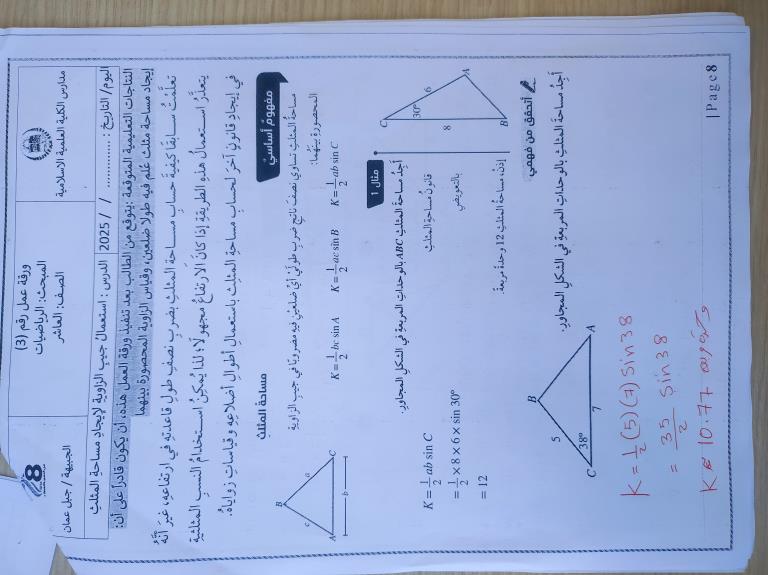 مدارس الكلية العلمية الاسلامية
ورقة عمل رقم (3)
المبحث: الرياضيات
الصف: العاشر
الجبيهة / جبل عمان
اليوم/ التاريخ : ............ / / 2025 الدرس : استعمال جيب الزاوية لإيجاد مساحة المثلث
النتاجات التعليمية المتوقعة :يتوقع من الطالب بعد تنفيذ ورقة العمل هذه، أن يكون قادراً على أن:
إيجاد مساحة مثلث عُلم فيه طولا ضلعين، وقياس الزاوية المحصورة بينهما
تعلَّمتُ سابقًا كيفيةَ حسابِ مساحةِ المثلثِ بضربِ نصفِ طولِ قاعدتِهِ في ارتفاعِهِ، غيرَ أنَّهُ
يتعذَّرُ استعمالُ هذهِ الطريقةِ إذا كانَ الارتفاعُ مجهولًا؛ لذا يُمكِنُ استخدامُ النسبِ المثلثيةِ
في إيجادِ قانونٍ آخرَ لحسابِ مساحةِ المثلثِ باستعمالِ أطوالِ أضلاعِهِ وقياساتِ زواياهُ.
مفهومٌ أساسيٌّ
مساحةُ المثلثِ
مساحةُ المثلثِ تساوي نصفَ ناتجِ ضربِ طولَيْ أيِّ ضلعَيْنِ فيهِ مضروبًا في جيبِ الزاويةِ
المحصورةِ بينَهُما:
B
c a
A b C
K = 1/2 bc sin A K = 1/2 ac sin B K = 1/2 ab sin C
مثال 1
أَجِدُ مساحةَ المثلثِ ABC بالوحداتِ المربعةِ في الشكلِ المجاورِ.
A
6
C 30°
8
B
K = 1/2 ab sin C قانونُ مساحةِ المثلثِ
= 1/2 × 8 × 6 × sin 30° بالتعويضِ
= 12
إذن، مساحةُ المثلثِ 12 وحدةً مربعةً.
أتحقق من فهمي
أَجِدُ مساحةَ المثلثِ بالوحداتِ المربعةِ في الشكلِ المجاورِ.
B
5
C 38° 7 A
K = 1/2 (5)(7) Sin 38
= 35/2 Sin 38
K ≈ 10.77 وحدة مربعة
| P a g e 8